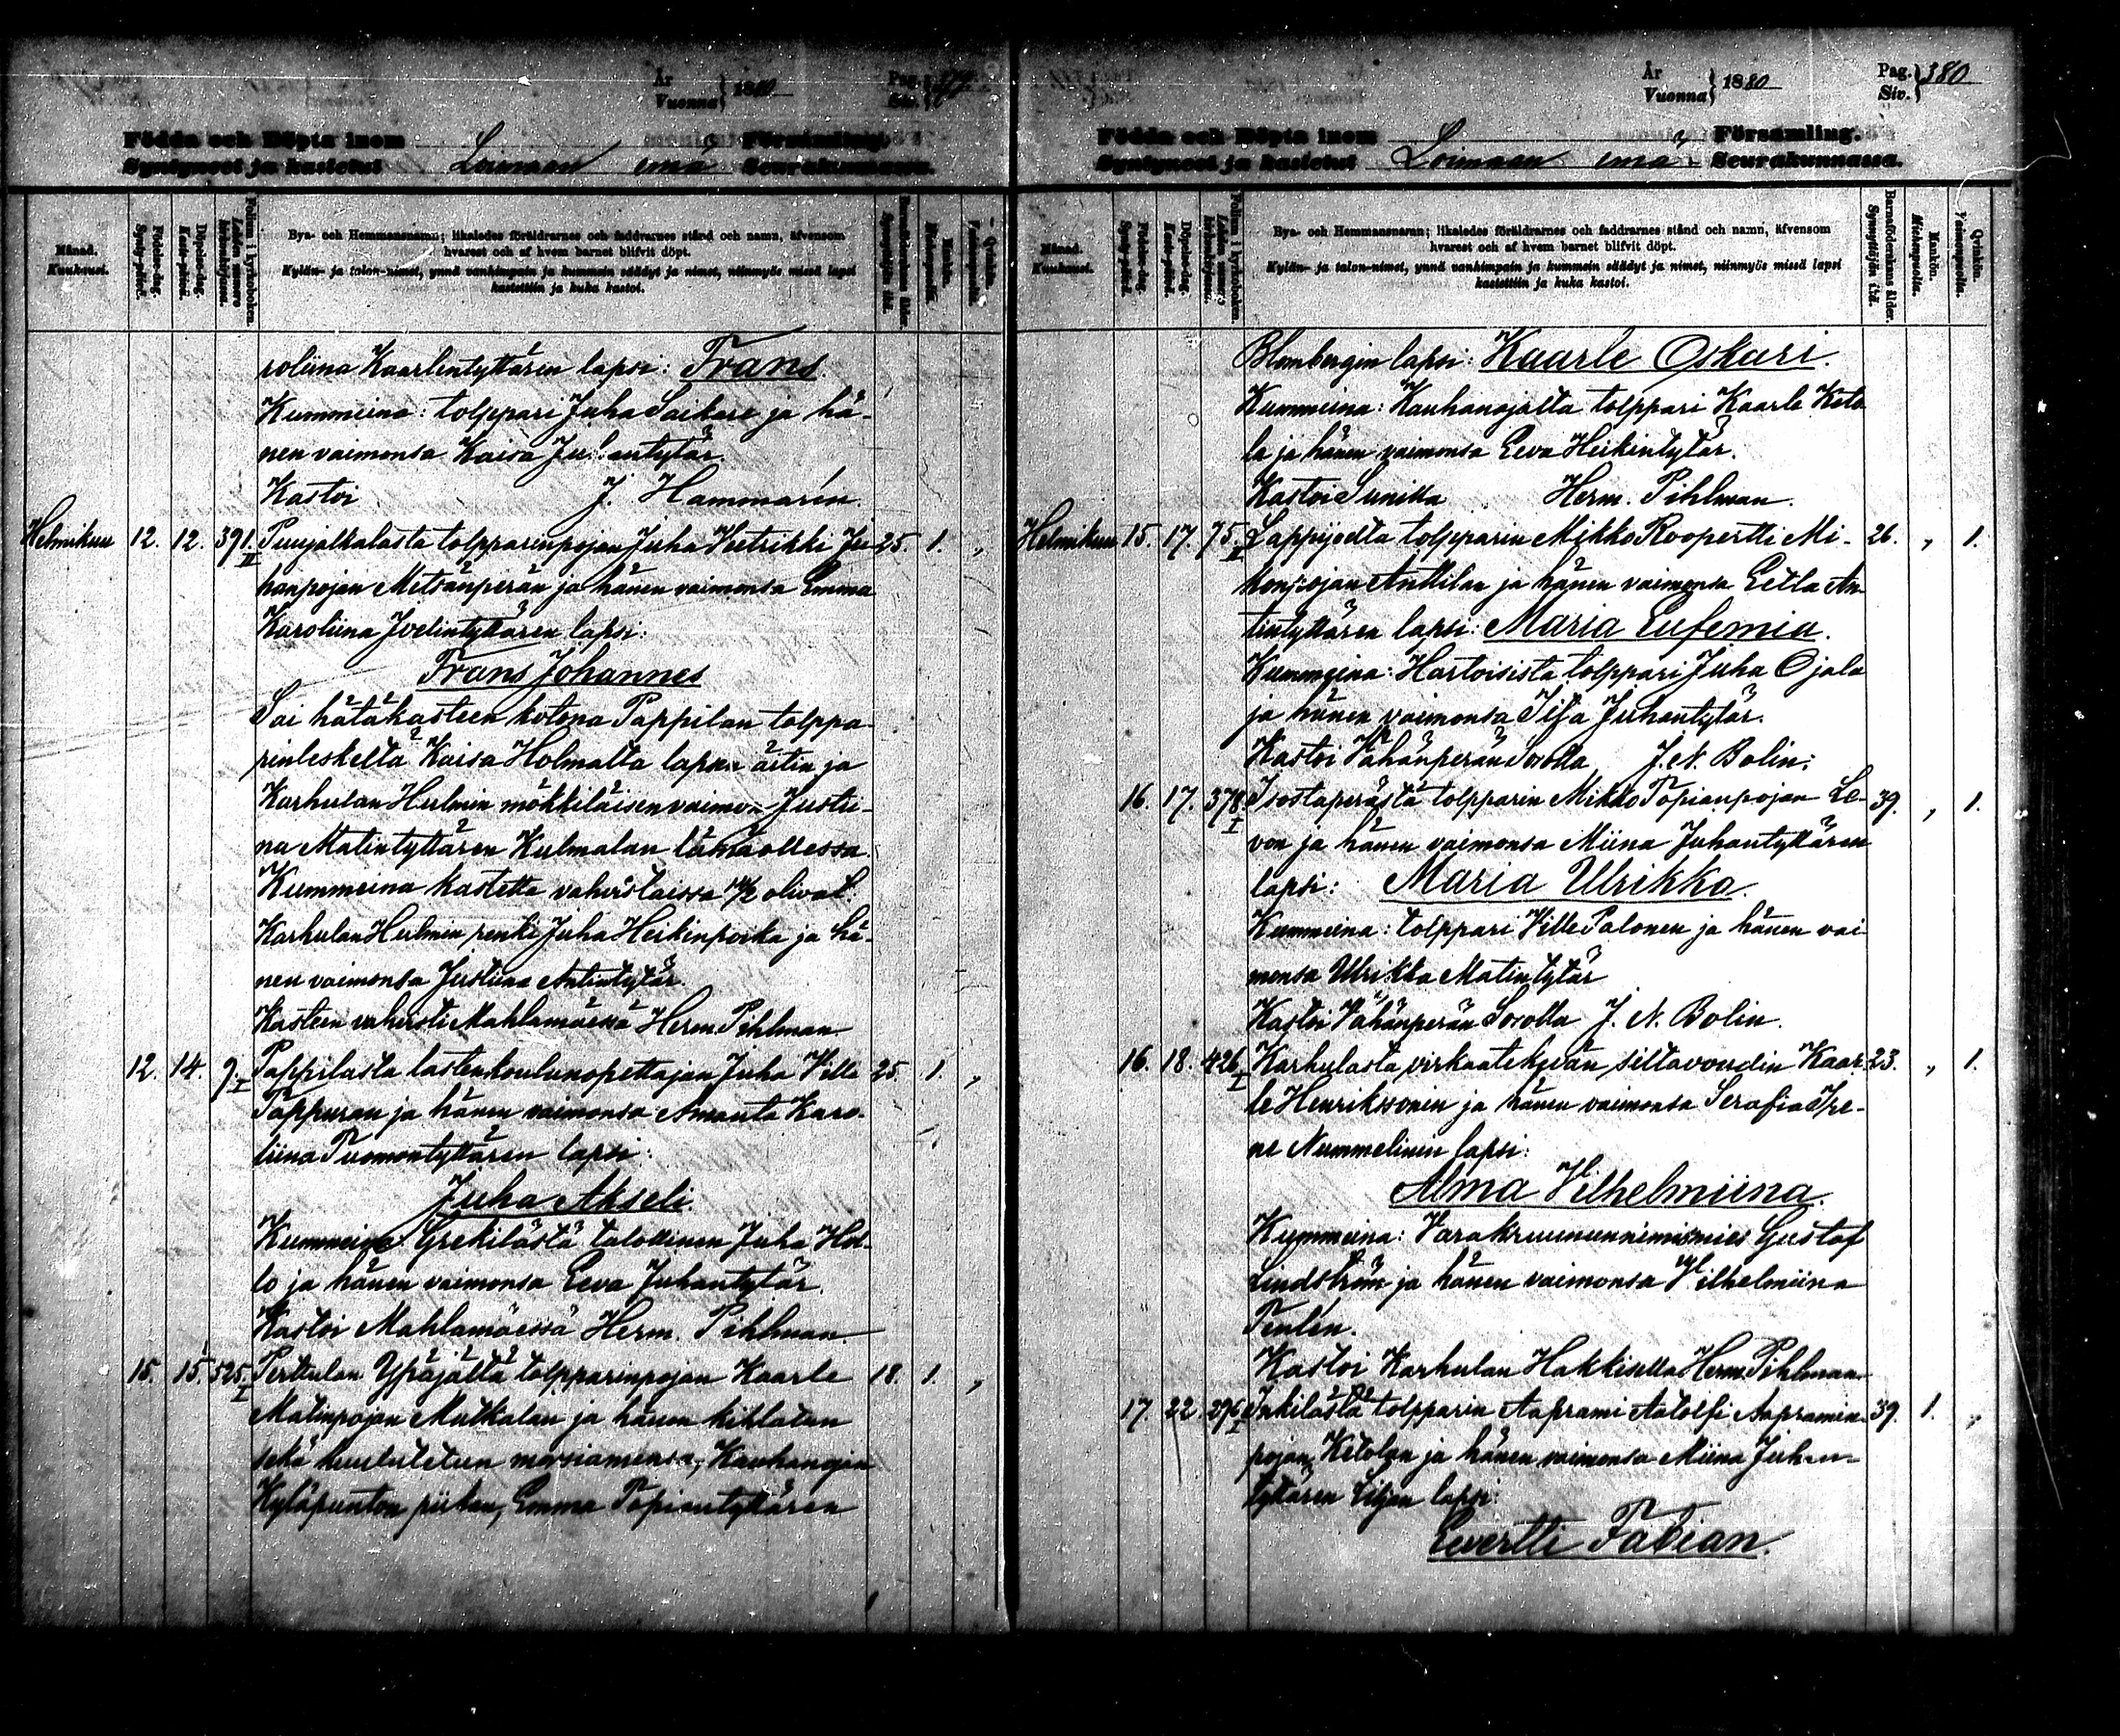 År
Vuonna } 1880
Pag.
Siv. } 379
Födda och Döpta inom
Syntyneet ja kastetut Loimaan emä
Församling.
Seurakunnassa.
Månad.
Kuukausi.
Födelse-dag.
Synty-päivä.
Döpelse-dag.
Kaste-päivä.
Folium i kyrkoboken.
Bya- och Hemmansnamn; likaledes föräldrarnes och faddrarnes stånd och namn, äfvensom
hvarest och af hvem barnet blifvit döpt.
Kylän- ja talon-nimet, ynnä vanhimpain ja kummein säädyt ja nimet, niinmyös missä lapsi
kastettiin ja kuka kastoi.
Barnaföderskans ålder.
Synnyttäjän ikä.
Mankön.
Miehenpuolia.
Qvinkön.
Vaimonpuolia.
roliina Kaarlentyttären lapsi: Frans
Kummeina: tolppari Juha Saikare ja hä-
nen vaimonsa Kaisa Juhantytär.
Kastoi J. Hammarén.
Helmikuu 12. 12. 391. II Puujalkalasta tolpparinpojan Juha Ketrikki Ju- 25. 1. „
hanpojan Metsänperän ja hänen vaimonsa Emma
Karoliina Joelintyttären lapsi:
Frans Johannes
Sai hätäkasteen kotona Pappilan tolppa-
rinleskeltä Kaisa Holmalta lapsen äitin ja
Karhulan Hulmin mökkiläisen vaimon Justii-
na Matintyttären Kulmalan läsnäollessa.
Kummeina kastetta vahvistaissa 14/2 olivat:
Karhulan Hulmin renki Juha Heikinpoika ja hä-
nen vaimonsa Justiina Antintytär.
Kasteen vahvisti Mahlamäessä Herm. Pihlman
12. 14. 9. I Pappilasta lastenkoulunopettajan Juha Ville 25. 1. „
Tappuran ja hänen vaimonsa Amanta Karo-
liina Tuomontyttären lapsi:
Juha Akseli.
Kummeina Grekilästä talollinen Juha Hol-
lo ja hänen vaimonsa Eeva Juhantytär.
Kastoi Mahlamäessä Herm. Pihlman
15. 15. 525. I Perttulan Ypäjältä tolpparinpojan Kaarle 18. 1. „
Matinpojan Mutkalan ja hänen kihlatun
sekä kuulutetun morsiamensa, Kauhanojan
Kyläpunton piikan, Emma Topiantyttären
År
Vuonna } 1880
Pag.
Siv. } 380
Födda och Döpta inom
Syntyneet ja kastetut Loimaan emä
Församling.
Seurakunnassa.
Månad.
Kuukausi.
Födelse-dag.
Synty-päivä.
Döpelse-dag.
Kaste-päivä.
Folium i kyrkoboken.
Bya- och Hemmansnamn; likaledes föräldrarnes och faddrarnes stånd och namn, äfvensom
hvarest och af hvem barnet blifvit döpt.
Kylän- ja talon-nimet, ynnä vanhimpain ja kummein säädyt ja nimet, niinmyös missä lapsi
kastettiin ja kuka kastoi.
Barnaföderskans ålder.
Synnyttäjän ikä.
Mankön.
Miehenpuolia.
Qvinkön.
Vaimonpuolia.
Blombergin lapsi: Kaarle Oskari.
Kummeina: Kauhanojalta tolppari Kaarle Keto
la ja hänen vaimonsa Eeva Heikintytär.
Kastoi Herm. Pihlman.
Helmikuu 15. 17. 75. II Lappijoelta tolpparin Mikko Roopertti Mi- 26. „ 1.
konpojan Anttilan ja hänen vaimonsa Eetla An-
tintyttären lapsi: Maria Eufemia.
Kummeina: Hartoisista tolppari Juha Ojala
ja hänen vaimonsa Juhantytär.
Kastoi Vähänperän Sorolla J. N. Bolin.
16. 17. 378. I Isostaperästä tolpparin Mikko Topianpojan Le- 39. „ 1.
von ja hänen vaimonsa Miina Juhantyttären
lapsi: Maria Ulrikka.
Kummeina: tolppari Ville Palonen ja hänen vai-
monsa Ulrikka Matintytär
Kastoi Vähänperän Sorolla J. N. Bolin.
16. 18. 426. I Karhulasta, virkaatekevän siltavoudin Kaar- 23. „ 1.
le Henrikssonin ja hänen vaimonsa Serafia Ire-
ne Nummelinin lapsi:
Alma Vilhelmiina.
Kummeina: Varakruununnimismies Gustaf
Lindström ja hänen vaimonsa Vilhelmiina
Tenlén.
Kastoi Karhulan Hakkisella Herm. Pihlman
17. 22. 296. I Inkilästä tolpparin Aaprami Aatolfi Aapramin- 39. 1. „
pojan Ketolan ja hänen vaimonsa Miina Juhan-
tyttären Liljan lapsi:
Eevertti Fabian.